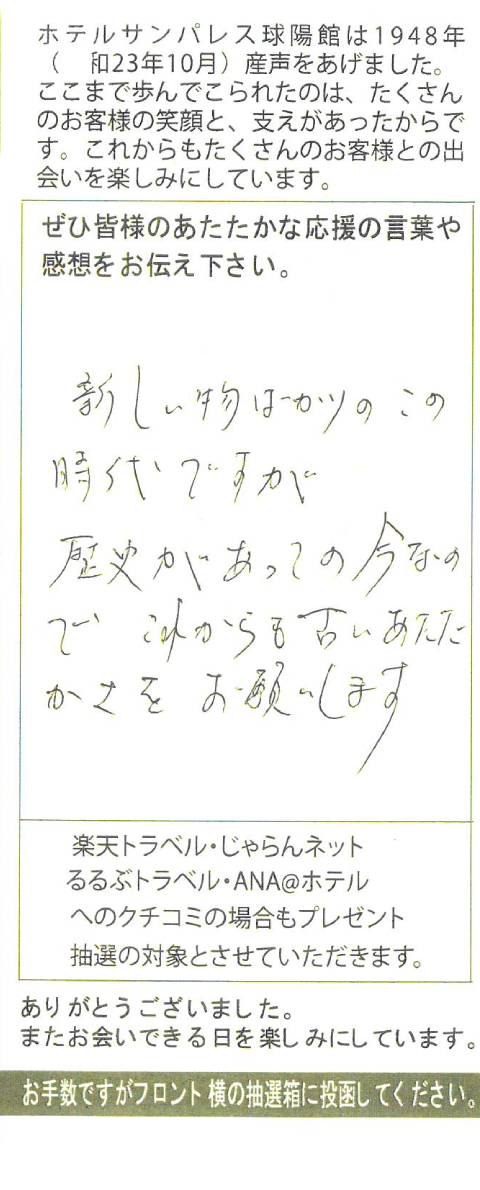 ホテルサンパレス球陽館は1948年
（　和23年10月）産声をあげました。
ここまで歩んでこられたのは、たくさん
のお客様の笑顔と、支えがあったからで
す。これからもたくさんのお客様との出
会いを楽しみにしています。
ぜひ皆様のあたたかな応援の言葉や
感想をお伝え下さい。
新しい物ばかりの この
時代ですが
歴史があっての今なの
で これからも古いあたた
かさを お願いします
楽天トラベル・じゃらんネット
るるぶトラベル・ANA@ホテル
へのクチコミの場合もプレゼント
抽選の対象とさせていただきます。
ありがとうございました。
またお会いできる日を楽しみにしています。
お手数ですがフロント横の抽選箱に投函してください。